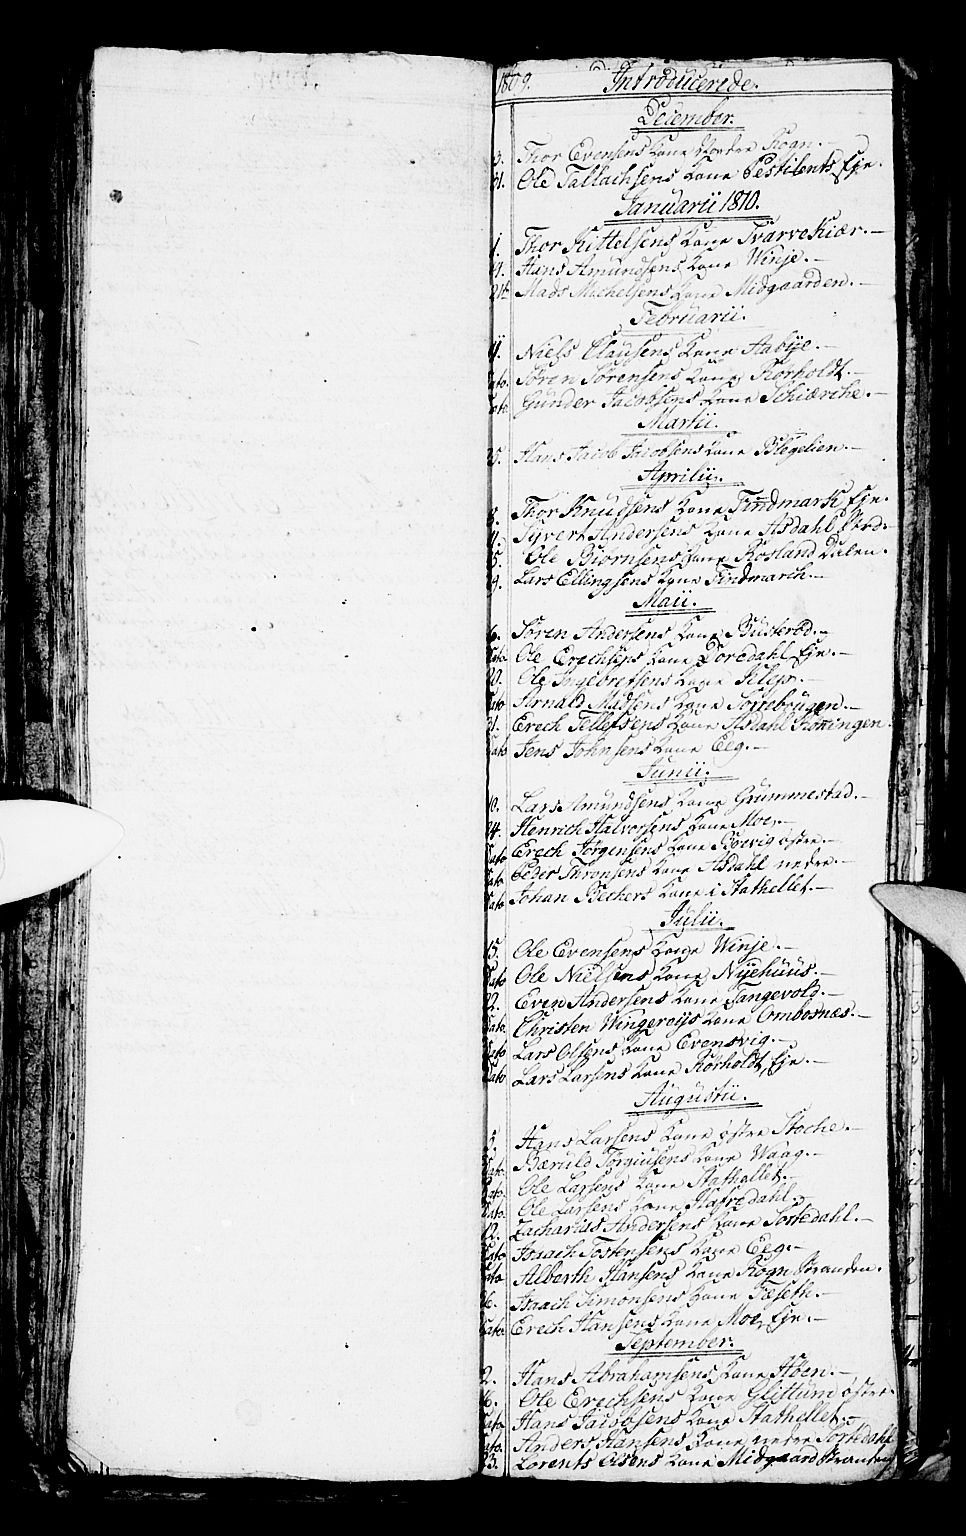 1809. Introducerede.
December.
3. Thor Evensens Kone Nordre Rogn.
31. Ole Tallachsens Kone Pestilents Eje.
Januarii 1810.
1. Thor Kittelsens Kone Tvarvekiær.
Hans Amundsens Kone Winje.
Mads Michelsens Kone Midgaarden.
Februarii.
Niels Clausens Kone Aabye.
Dato. Søren Sørensens Kone Korholdt.
Dato. Gunder Jacobsens Kone Schiærche.
Martii.
25. Hans Jacob Jacobsens Kone Blegelien.
Aprilii.
8. Thor Knudsens Kone Findmark Eje.
Syvert Andersens Kone Asdahl
Ole Biørnsens Kone Rosland Dalen.
Lars Ellingsens Kone Findmarch.
Maii.
6. Søren Andersens Kone Busterød.
Dato. Ole Erechsens Kone Toredahl Eje.
20. Ole Ingebretsens Kone Selejs.
Dato Arnold Madsens Kone Sørnebougen.
31. Erech Tellefsens Kone Asdahl Røningen.
Dato Jens Johnsens Kone Eeg.
Junii.
10. Lars Amundsens Kone Grummestad.
24. Henrich Halvorsens Kone Moe.
Dato Erech Jørgensens Kone Boevig østre.
Dato Peder Thronsens Kone Asdahl nedre.
Dato Johan Bechers Kone i Stathellet.
Julii.
15. Ole Evensens Kone Winje.
Dato Ole Nielsens Kone Nyehuus.
22. Even Andersens Kone Tangevold.
Dato. Christen Wingereijs Kone Ombosnæs.
Dato Lars Olsens Kone Evensvig.
Dato Lars Larsens Kone Korholdt Eje.
Augustii.
5. Hans Larsens Kone østre Stoche.
Dato. Bæruld Torgiusens Kone Waag.
Dato. Ole Larsens Kone Stathellet.
Dato. Ole Larsens Kone Hafredahl.
12. Zacharias Andersens Kone Tortedahl.
Dato Isaach Tostensens Kone Eeg.
Dato Alberth Hansens Kone Rogn Stranden.
26. Isaach Simonsens Kone Fæseth.
Dato. Erech Hansens Kone Moe, Eje.
September.
2. Hans Abrahamsens Kone Aaen.
16. Ole Erechsens Kone Glittum østre
Dato Hans Jacobsens Kone Stathellet.
Dato. Anders Hansens Kone nedre Tortedahl
23. Lorents Olsens Kone Midgaard Stranden